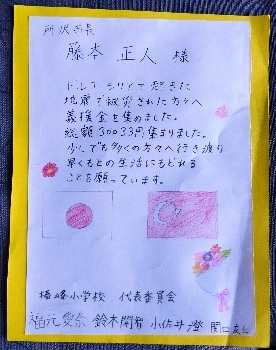 所沢市長
藤本 正人 様
トルコ シリアで起きた
地震で被災された方々へ
義援金を集めました。
総額30033円集まりました。
少しでも多くの方々へ行き渡り
早くもとの生活にもどれる
ことを願っています。
椿峰小学校 代表委員会
福元 鈴木開 小佐井澄 関口